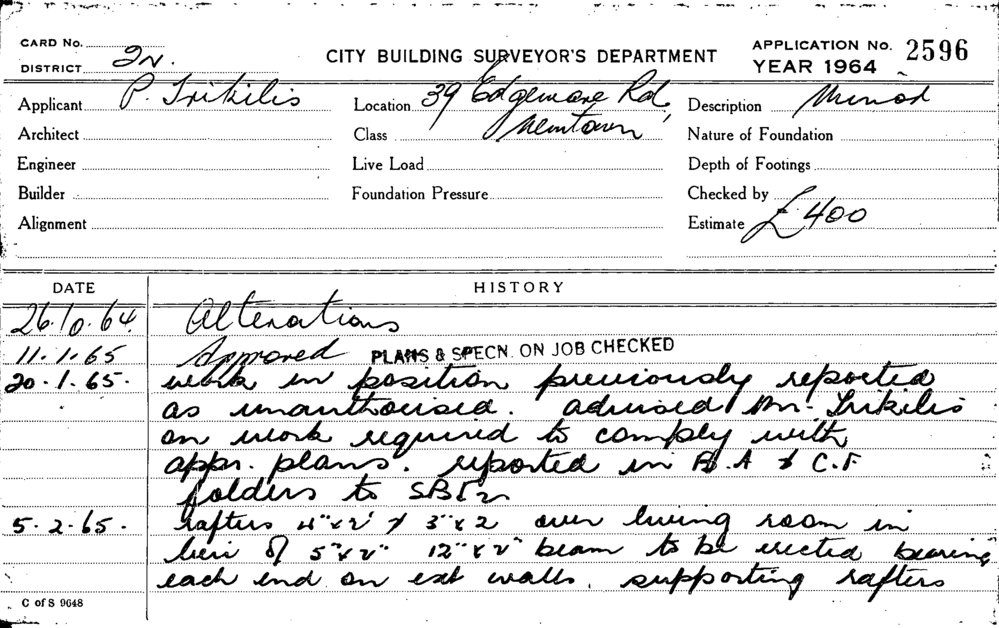 CARD No.
DISTRICT 2N.
CITY BUILDING SURVEYOR'S DEPARTMENT
APPLICATION No. 2596
YEAR 1964
Applicant P. Trikilis
Location 39 Edgeware Rd,
Description Minor
Architect
Class Newtown
Nature of Foundation
Engineer
Live Load
Depth of Footings
Builder
Foundation Pressure
Checked by
Alignment
Estimate £400
DATE HISTORY
26.10.64. Alterations
11.1.65 Approved PLANS & SPECN. ON JOB CHECKED
20.1.65. work in position previously reported
as unauthorised. advised Mr. Trikilis
on work required to comply with
appr. plans. reported in B.A & C.F.
folders to SB
5.2.65. rafters 4"x2" & 3"x2 over living room in
lieu of 5"x2" 12"x2" beam to be erected bearing
each end on ext walls. supporting rafters
C of S 9648